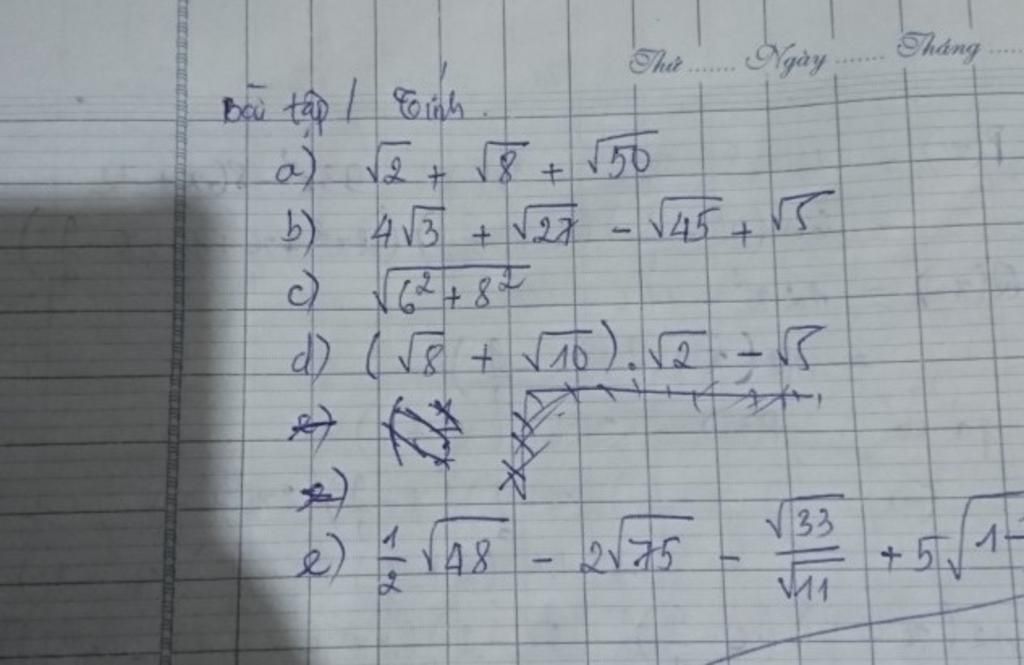 Thứ ....... Ngày ....... Tháng .....
Bài tập 1 Tính.
a) √2 + √8 + √50
b) 4√3 + √27 - √45 + √5
c) √(6² + 8²)
d) (√8 + √10).√2 - √5
e)
e)
e) 1/2 √48 - 2√75 - √33/√11 + 5√1